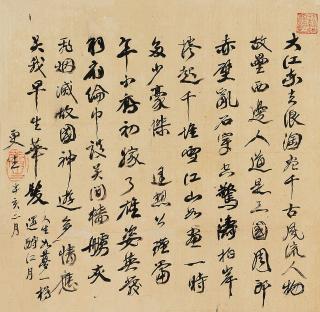 大江东去浪淘尽千古风流人物
故垒西边人道是三国周郎
赤壁乱石穿空惊涛拍岸
卷起千堆雪江山如画一时
多少豪杰遥想公瑾当
年小乔初嫁了雄姿英发
羽扇纶巾谈笑间樯橹灰
飞烟灭故国神游多情应
笑我早生华发
人生如梦一樽
还酹江月
辛亥二月